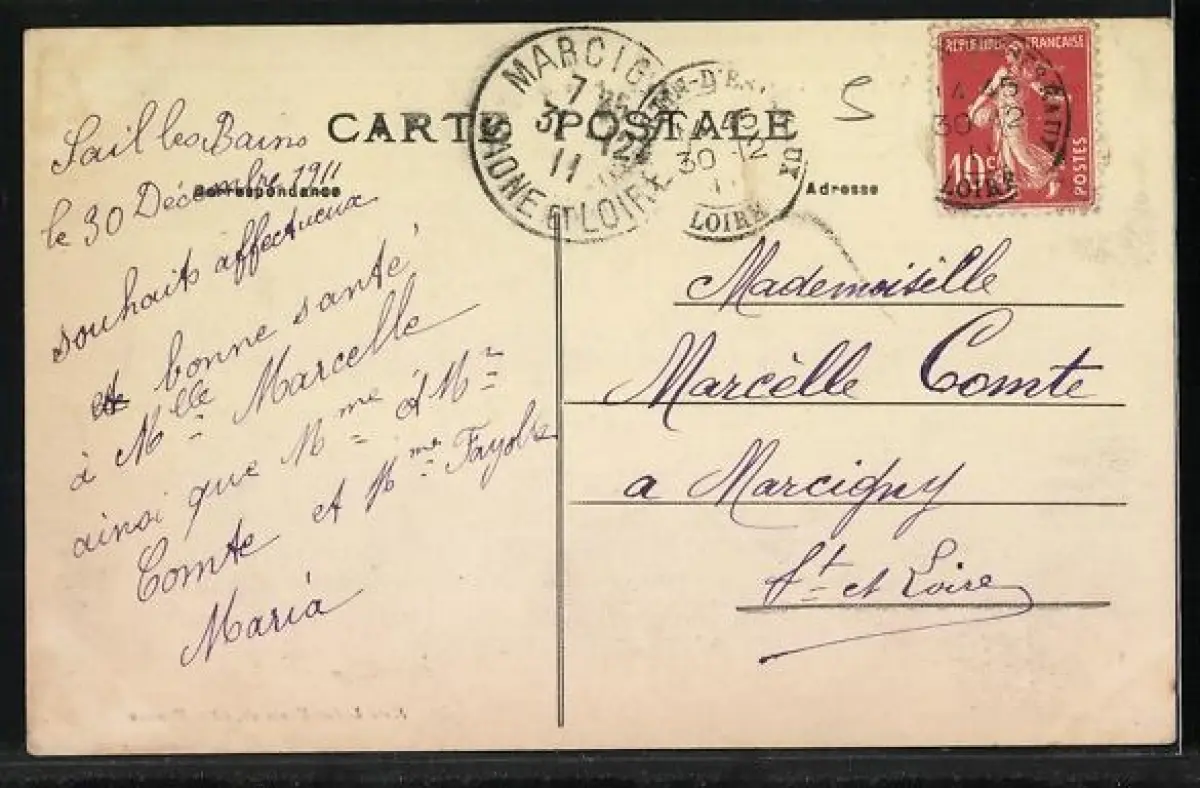 CARTE POSTALE
Correspondance
Adresse
MARCIG
7
11
SAONE ET LOIRE
30 12
LOIRE
REPUBLIQUE FRANÇAISE
10c
POSTES
14 45
30 12
LOIRE
5
Sail les Bains
le 30 Décembre 1911
souhaits affectueux
et bonne santé
à Mlle Marcelle
ainsi que Mme et Mr
Comte et Mme Fayolle
Maria
Mademoiselle
Marcèlle Comte
a Marcigny
St et Loire